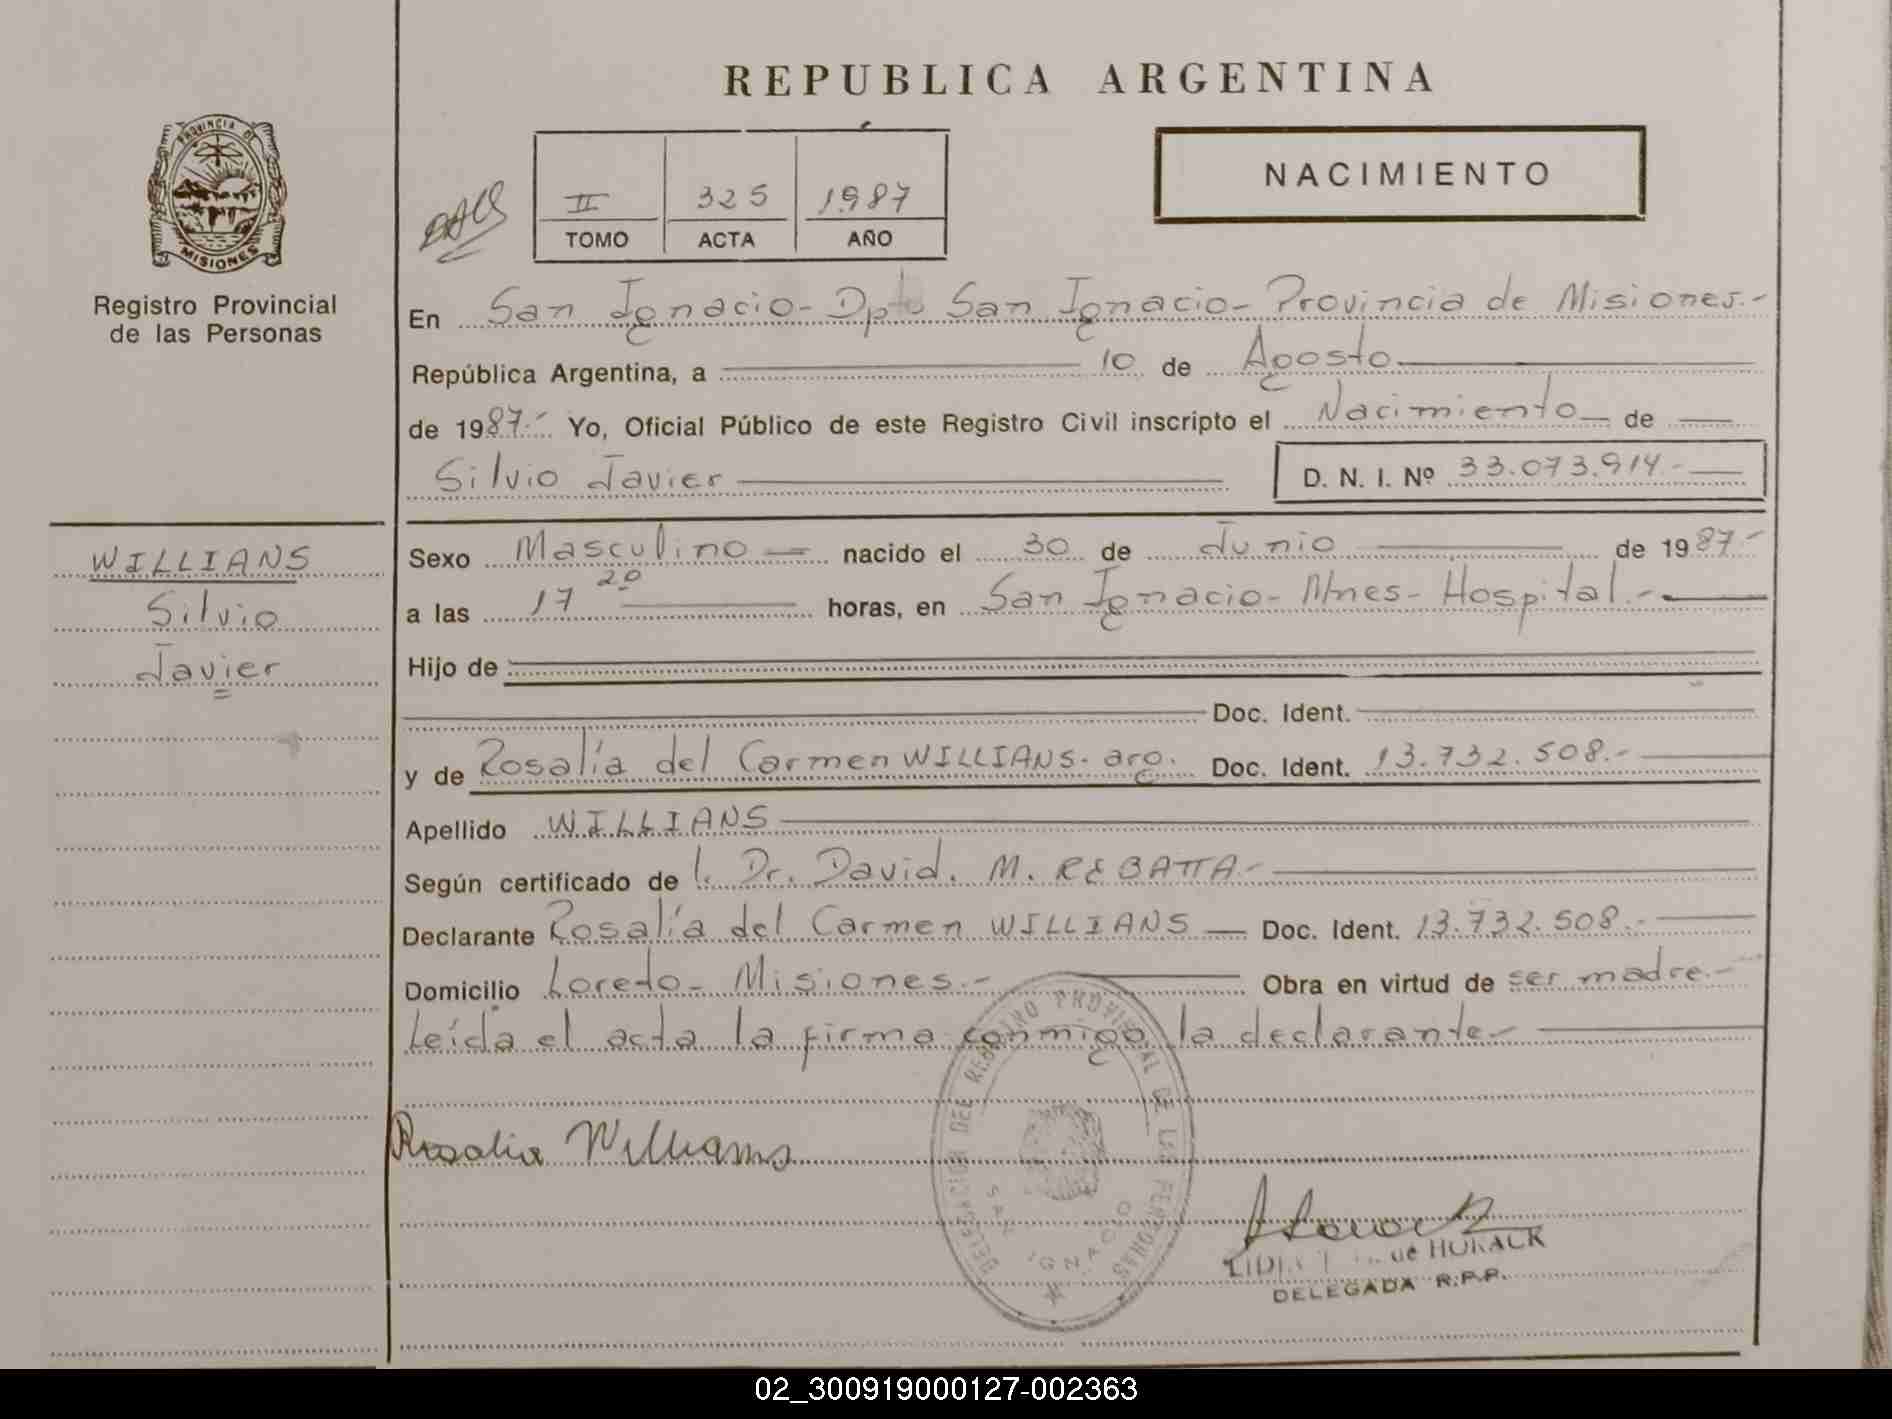 REPUBLICA ARGENTINA
PROVINCIA DE
MISIONES
Registro Provincial
de las Personas
II 325 1987
TOMO ACTA AÑO
NACIMIENTO
En San Ignacio- Dpto San Ignacio- Provincia de Misiones.-
República Argentina, a 10 de Agosto
de 1987.- Yo, Oficial Público de este Registro Civil inscripto el Nacimiento de
Silvio Javier D. N. I. Nº 33.073.914.-
WILLIANS
Silvio
Javier
Sexo Masculino nacido el 30 de Junio de 1987.-
a las 17 20 horas, en San Ignacio- Mnes- Hospital.-
Hijo de
Doc. Ident.
y de Rosalía del Carmen WILLIANS. arg. Doc. Ident. 13.732.508.-
Apellido WILLIANS
Según certificado de l. Dr. David. M. REBATTA.-
Declarante Rosalía del Carmen WILLIANS Doc. Ident. 13.732.508.-
Domicilio Loreto- Misiones.- Obra en virtud de ser madre.-
Leída el acta la firma conmigo la declarante-
Rosalia Willians
DELEGACION DEL REGISTRO PROVINCIAL DE LAS PERSONAS
SAN IGNACIO
de HORACK
DELEGADA R.P.P.
02_300919000127-002363